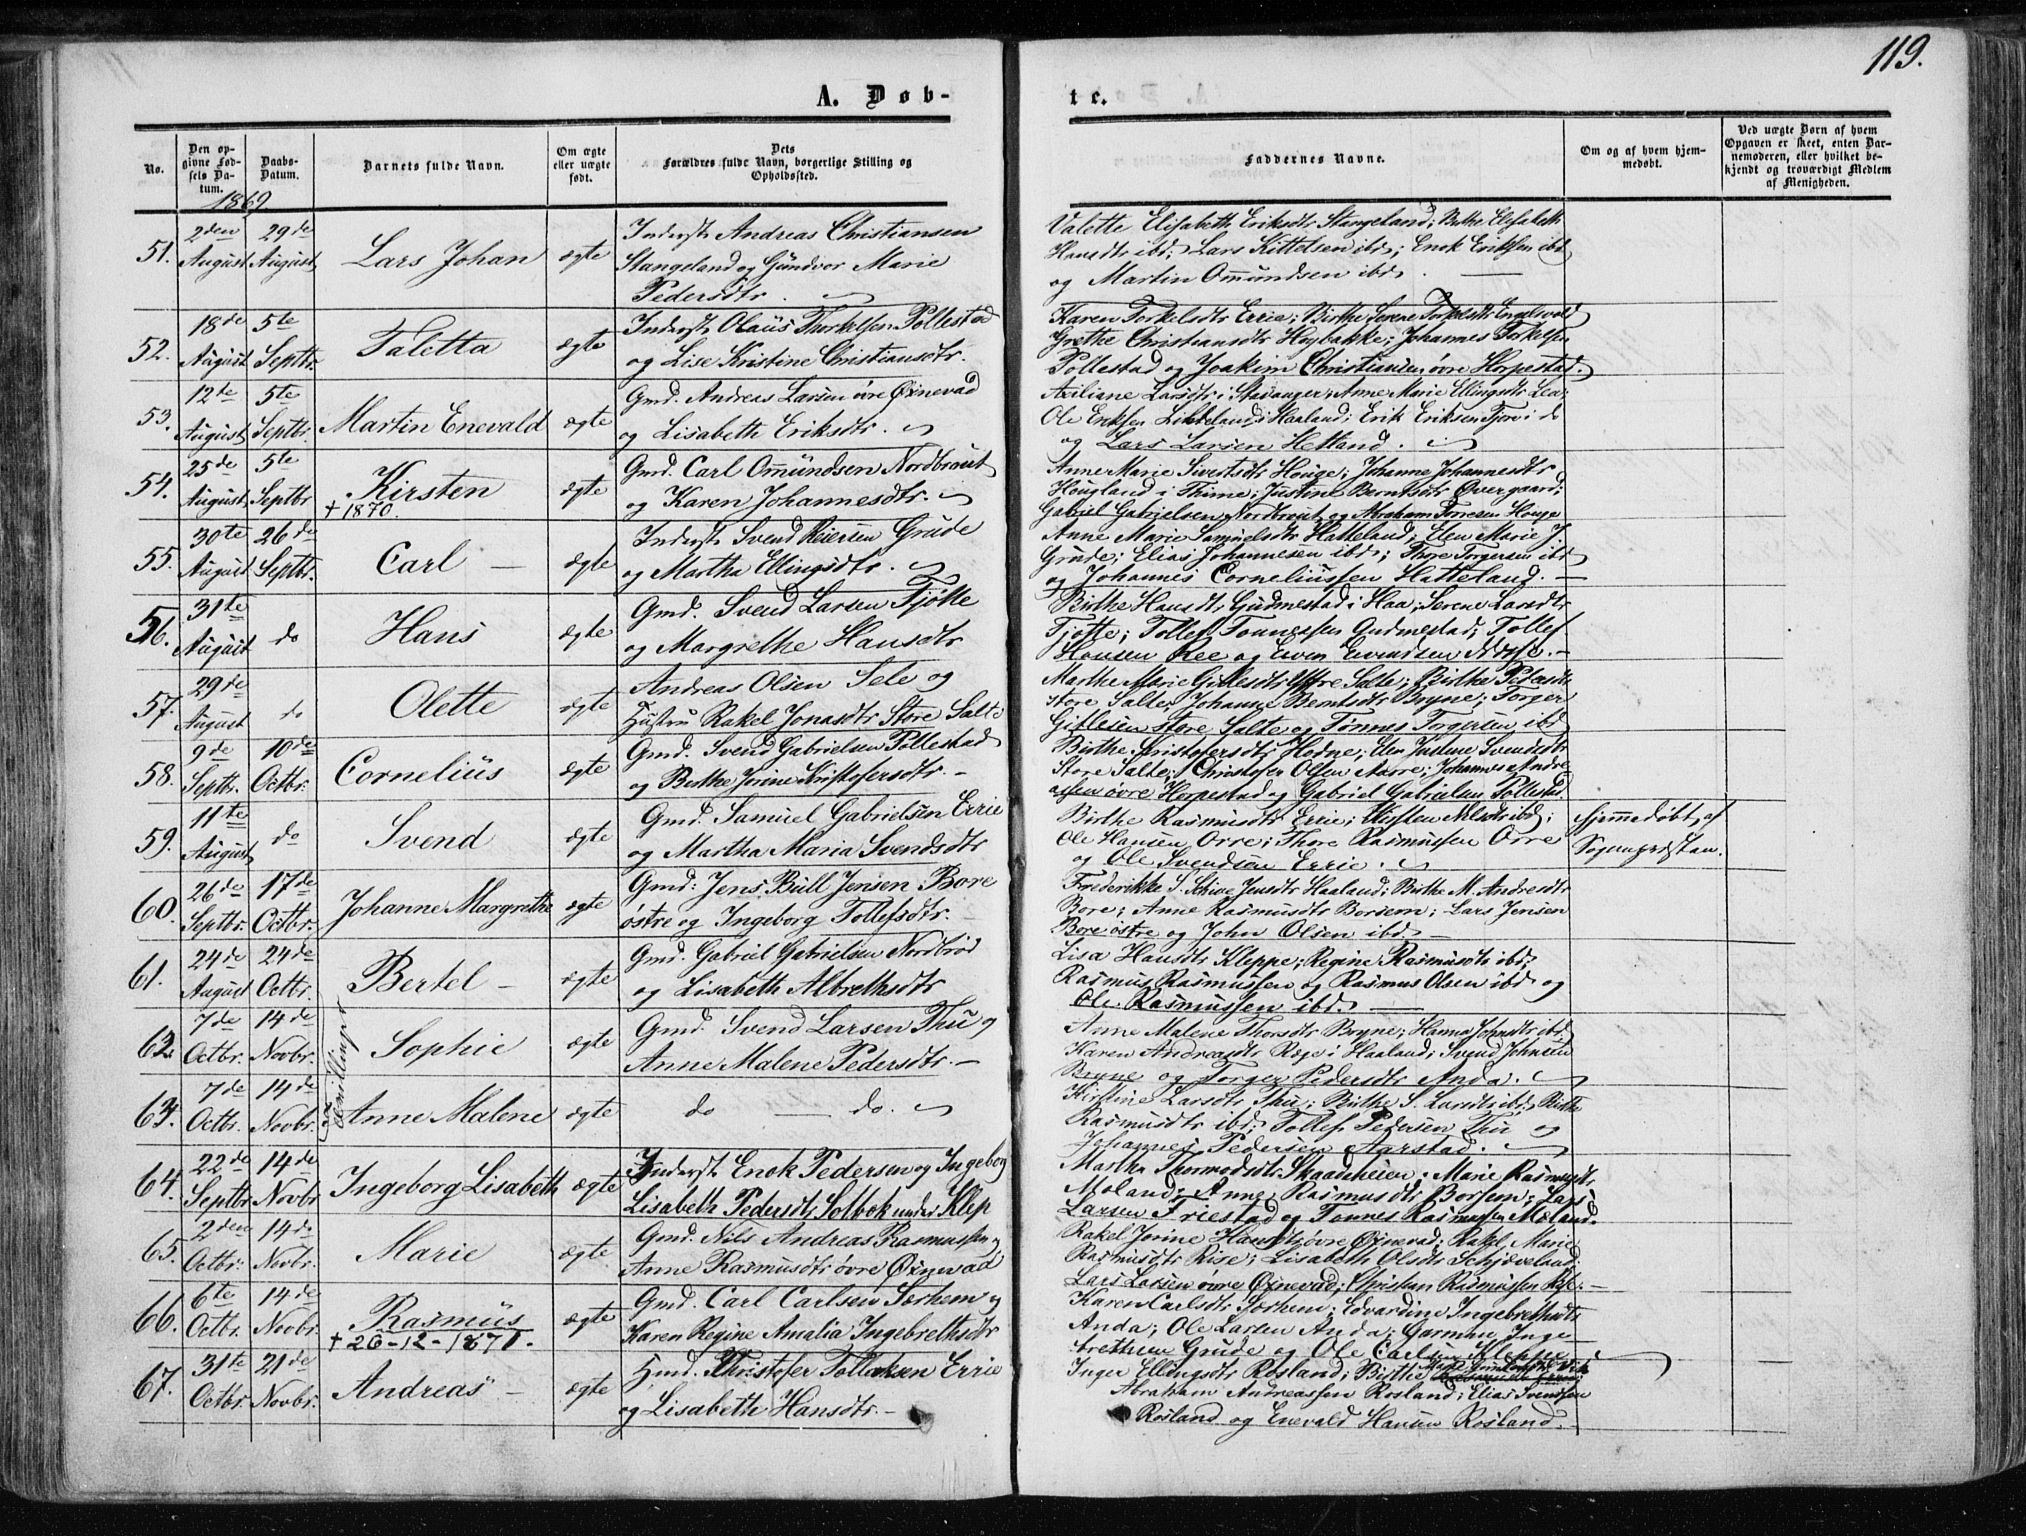 119.
A. Døb-
te.
No.
Den op-
givne Fød-
sels Da-
tum.
Daabs-
Datum.
Barnets fulde Navn.
Om ægte
eller uægte
født.
Dets
Forældres fulde Navn, borgerlige Stilling og
Opholdssted.
Faddernes Navne.
Om og af hvem hjem-
medøbt.
Ved uægte Børn af hvem
Opgaven er skeet, enten Bar-
nemoderen, eller hvilket be-
kjendt og troværdigt Medlem
af Menigheden.
1869
51.
2den
August
29de
August
Lars Johan
ægte
Inderst Andreas Christiansen
Stangeland og Gundvor Marie
Pedersdtr.
Valette Elisabeth Eriksdtr Stangeland; Birthe Elisabeth
Hansdtr ibd; Lars Kittelsen ibd; Enok Eriksen ibd
og Martin Omundsen ibd.
52.
18de
August
5te
Septbr.
Taletta
ægte
Inderst Olaus Thorkelsen Pollestad
og Lise Kristine Christiansdtr.
Karen Torkelsdtr Errie; Birthe Serene Torkelsdtr Engelsvold
Grethe Christiansdtr Høybakke; Johannes Torkelsen
Pollestad og Joakim Christiansen øvre Horpestad.
53.
12te
August
5te
Septbr.
Martin Enevald
ægte
Gmd. Andreas Larsen øvre Øxnevad
og Lisabeth Eriksdtr.
Axiliane Larsdtr i Stavanger; Anne Marie Ellingsdtr Lea;
Ole Eriksen Lihleland i Haaland; Erik Eriksen Tjore i do
og Lars Larsen Hetland.
54.
25de
August
5te
Septbr
Kirsten
+ 1870.
ægte
Gmd. Carl Omundsen Nordbraut
og Karen Johannesdtr.
Anne Marie Sivertsdtr Houge; Johanne Johannesdtr
Hougland i Thime; Justine Berntsdtr Øvergaard;
Gabriel Gabrielsen Nordbraut og Abraham Torresen Houge
55.
30te
August
26de
Septbr.
Carl
ægte
Inderst Svend Reiersen Grude
og Martha Ellingsdtr.
Anne Marie Samuelsdtr Hatteland; Elen Marie J.
Grude; Elias Johannesen ibd; Thore Torgersen ibd
og Johannes Corneliussen Hatteland.
56.
31te
August
do
Hans
ægte
Gmd. Svend Larsen Tjøtte
og Margrethe Hansdtr
Birthe Hansdtr Gudmestad i Haa; Serene Larsdtr
Tjøtte; Tollef Tonnessen Gudmestad; Tollef
Hansen Ree og Even Evendsen
57.
29de
August
do
Olette
ægte
Andreas Olsen Sele og
Hustru Rakel Jonasdtr Store Salte
Marthe Marie Gitlesdtr Store Salte; Birthe Petersdtr
store Salte; Johanne Berntsdtr Bryne; Torger
Gitlesen store Salte og Tønnes Torgersen ibd
58.
9de
Septbr.
10de
Octbr.
Cornelius
ægte
Gmd. Svend Gabrielsen Pollestad
og Birthe Jorine Kristofersdtr.
Birthe Kristofersdtr Hodne; Elen Justine Svendsdtr
Store Salte; Christofer Olsen Aarre; Johannes Andre
assen øvre Horpestad og Gabriel Gabrielsen Pollestad
59.
11te
August
do
Svend
ægte
Gmd. Samuel Gabrielsen Errie
og Martha Maria Svendsdtr
Birthe Rasmusdtr Errie; Kirsten Nilsdtr ibd;
Ole Hansen Orre; Thore Rasmussen Orre
og Ole Svendsen Errie.
Hjemmedøbt af
Sognepræsten.
60.
26de
Septbr.
17de
Octbr.
Johanne Margrethe
ægte
Gmd: Jens Bull Jensen Bore
østre og Ingeborg Tollefsdtr.
Frederikke S. Schive Jensdtr Haaland; Birthe M. Andresdtr
Bore; Anne Rasmusdtr Borsem; Lars Jensen
Bore østre og John Olsen ibd
61.
24de
August
24de
Octbr.
Bertel
ægte
Gmd. Gabriel Gabrielsen Nordbrød
og Lisabeth Albrethsdtr
Lisa Hansdtr Kleppe; Regine Rasmusdtr ibd;
Rasmus Rasmussen og Rasmus Olsen ibd og
Ole Rasmussen ibd.
Tvillinger
62.
7de
Octbr.
14de
Novbr.
Sophie
ægte
Gmd. Svend Larsen Thu og
Anne Malene Pedersdtr.
Anne Malene Thorsdtr Bryne; Hanna Johnsdtr ibd
Karen Andreasdtr Røge i Haaland; Svend Johnsen
Bryne og Torger Pedersdtr Anda.
63.
7de
Octbr.
14de
Novbr.
Anne Malene
ægte
do — do.
Kirstine Larsdtr Thu; Birthe S. Larsdtr ibd; Birthe
Rasmusdtr ibd; Tollef Pedersen Thu og
Johannes Pedersen Aarstad.
64.
22de
Septbr
14de
Novbr
Ingeborg Lisabeth
ægte
Inderst Enok Pedersen og Ingeborg
Lisabeth Pedersdtr Solbok under Klep
Martha Thormodsdtr Skaadeheien; Marie Rasmusdtr
Moland; Anne Rasmusdtr Borsem; Lars
Larsen Friestad og Tonnes Rasmussen Moland.
65.
2den
Octbr.
14de
Novbr.
Marie
ægte
Gmd. Nils Andreas Rasmussen og
Anne Rasmusdtr øvre Øxnevad
Rakel Jorine Hansdtr øvre Øxnevad; Rakel Marie
Rasmusdtr Rise; Lisabeth Olsdtr Schjæveland;
Lars Larsen øvre Øxnevad; Christian Rasmussen Rise.
66.
6te
Octbr.
14de
Novbr.
Rasmus
+ 26-12-1871.
ægte
Gmd. Carl Carlsen Sørhem og
Karen Regine Amalia Ingebrethsdtr
Karen Carlsdtr Sørhem; Edvardine Ingebrethsdtr
Anda; Ole Larsen Anda; Garman Inge
brethsen Grude og Ole Carlsen Kleppe.
67.
31te
Octbr.
21de
Novbr.
Andreas
ægte
Hmd. Christofer Tollaksen Errie
og Lisabeth Hansdtr.
Inger Ellingsdtr Rosland; Birthe
Abraham Andreassen Rosland; Elias Svendsen
Rosland og Enevald Hansen Rosland.